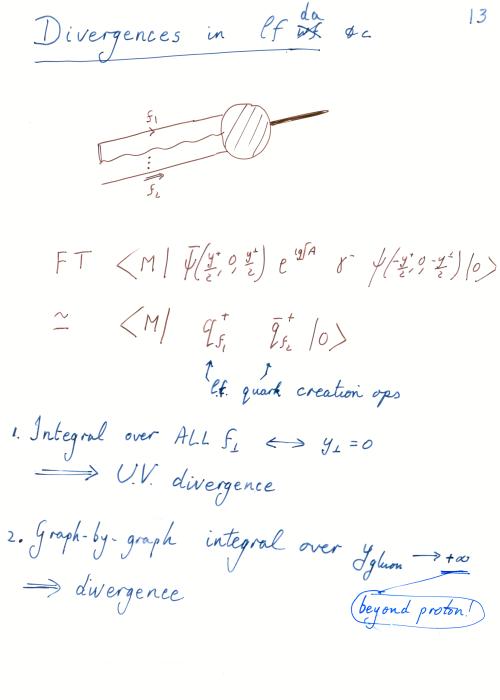 13
Divergences in lf da &c
f₁
⋮
f₂
FT <M| ψ̄(y⁺/2, 0, y^⊥/2) e^{ig∫A} γ⁻ ψ(-y⁺/2, 0, -y^⊥/2) |0>
≃ <M| q⁺_{f₁} q̄⁺_{f₂} |0>
↑ ↑
l.f. quark creation ops
1. Integral over ALL f_⊥ ⟷ y_⊥ = 0
⟹ U.V. divergence
2. Graph-by-graph integral over y_{gluon} → +∞
⟹ divergence
beyond proton!